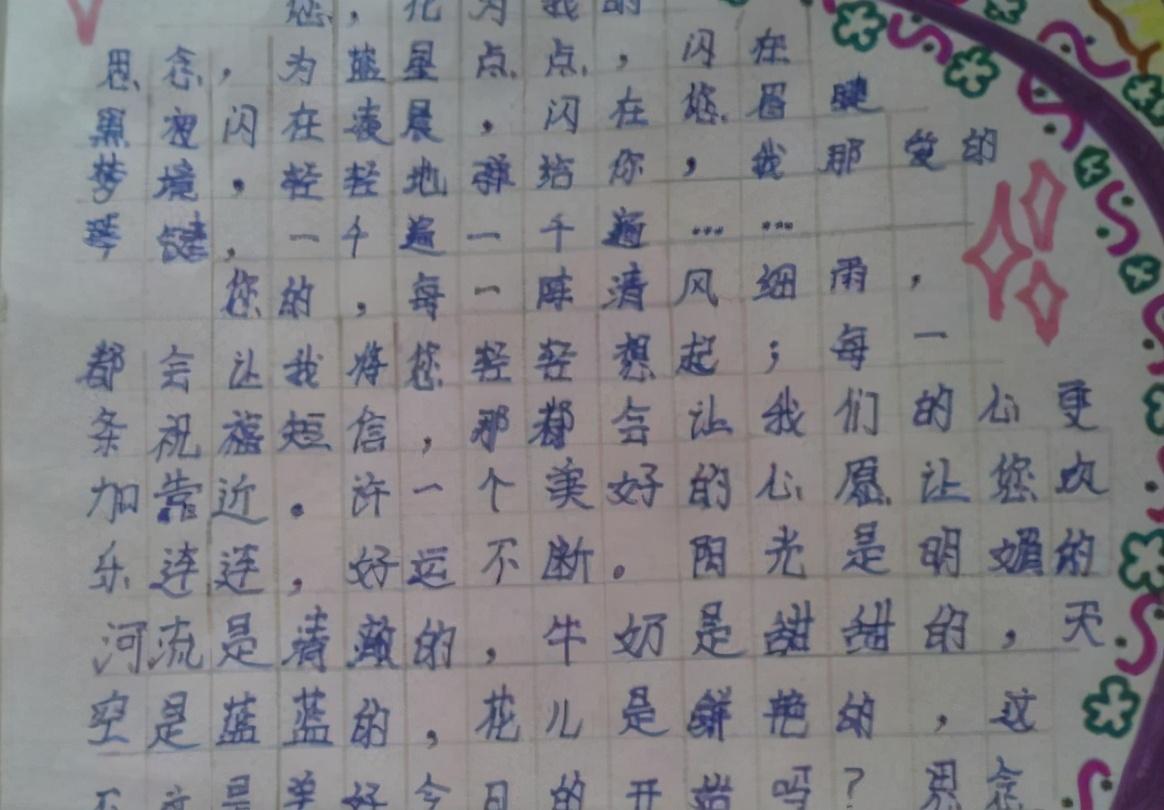 您，化为我的
思念，为蓝星点点，闪在
黑夜闪在凌晨，闪在您眉睫
梦境，轻轻地弹给你，我那爱的
琴键，一千遍一千遍……
您的，每一阵清风细雨，
都会让我将您轻轻想起；每一
条祝福短信，那都会让我们的心更
加靠近。许一个美好的心愿让您欢
乐连连，好运不断。阳光是明媚的
河流是清澈的，牛奶是甜甜的，天
空是蓝蓝的，花儿是鲜艳的，这
不 是美好今日的开始吗？思念